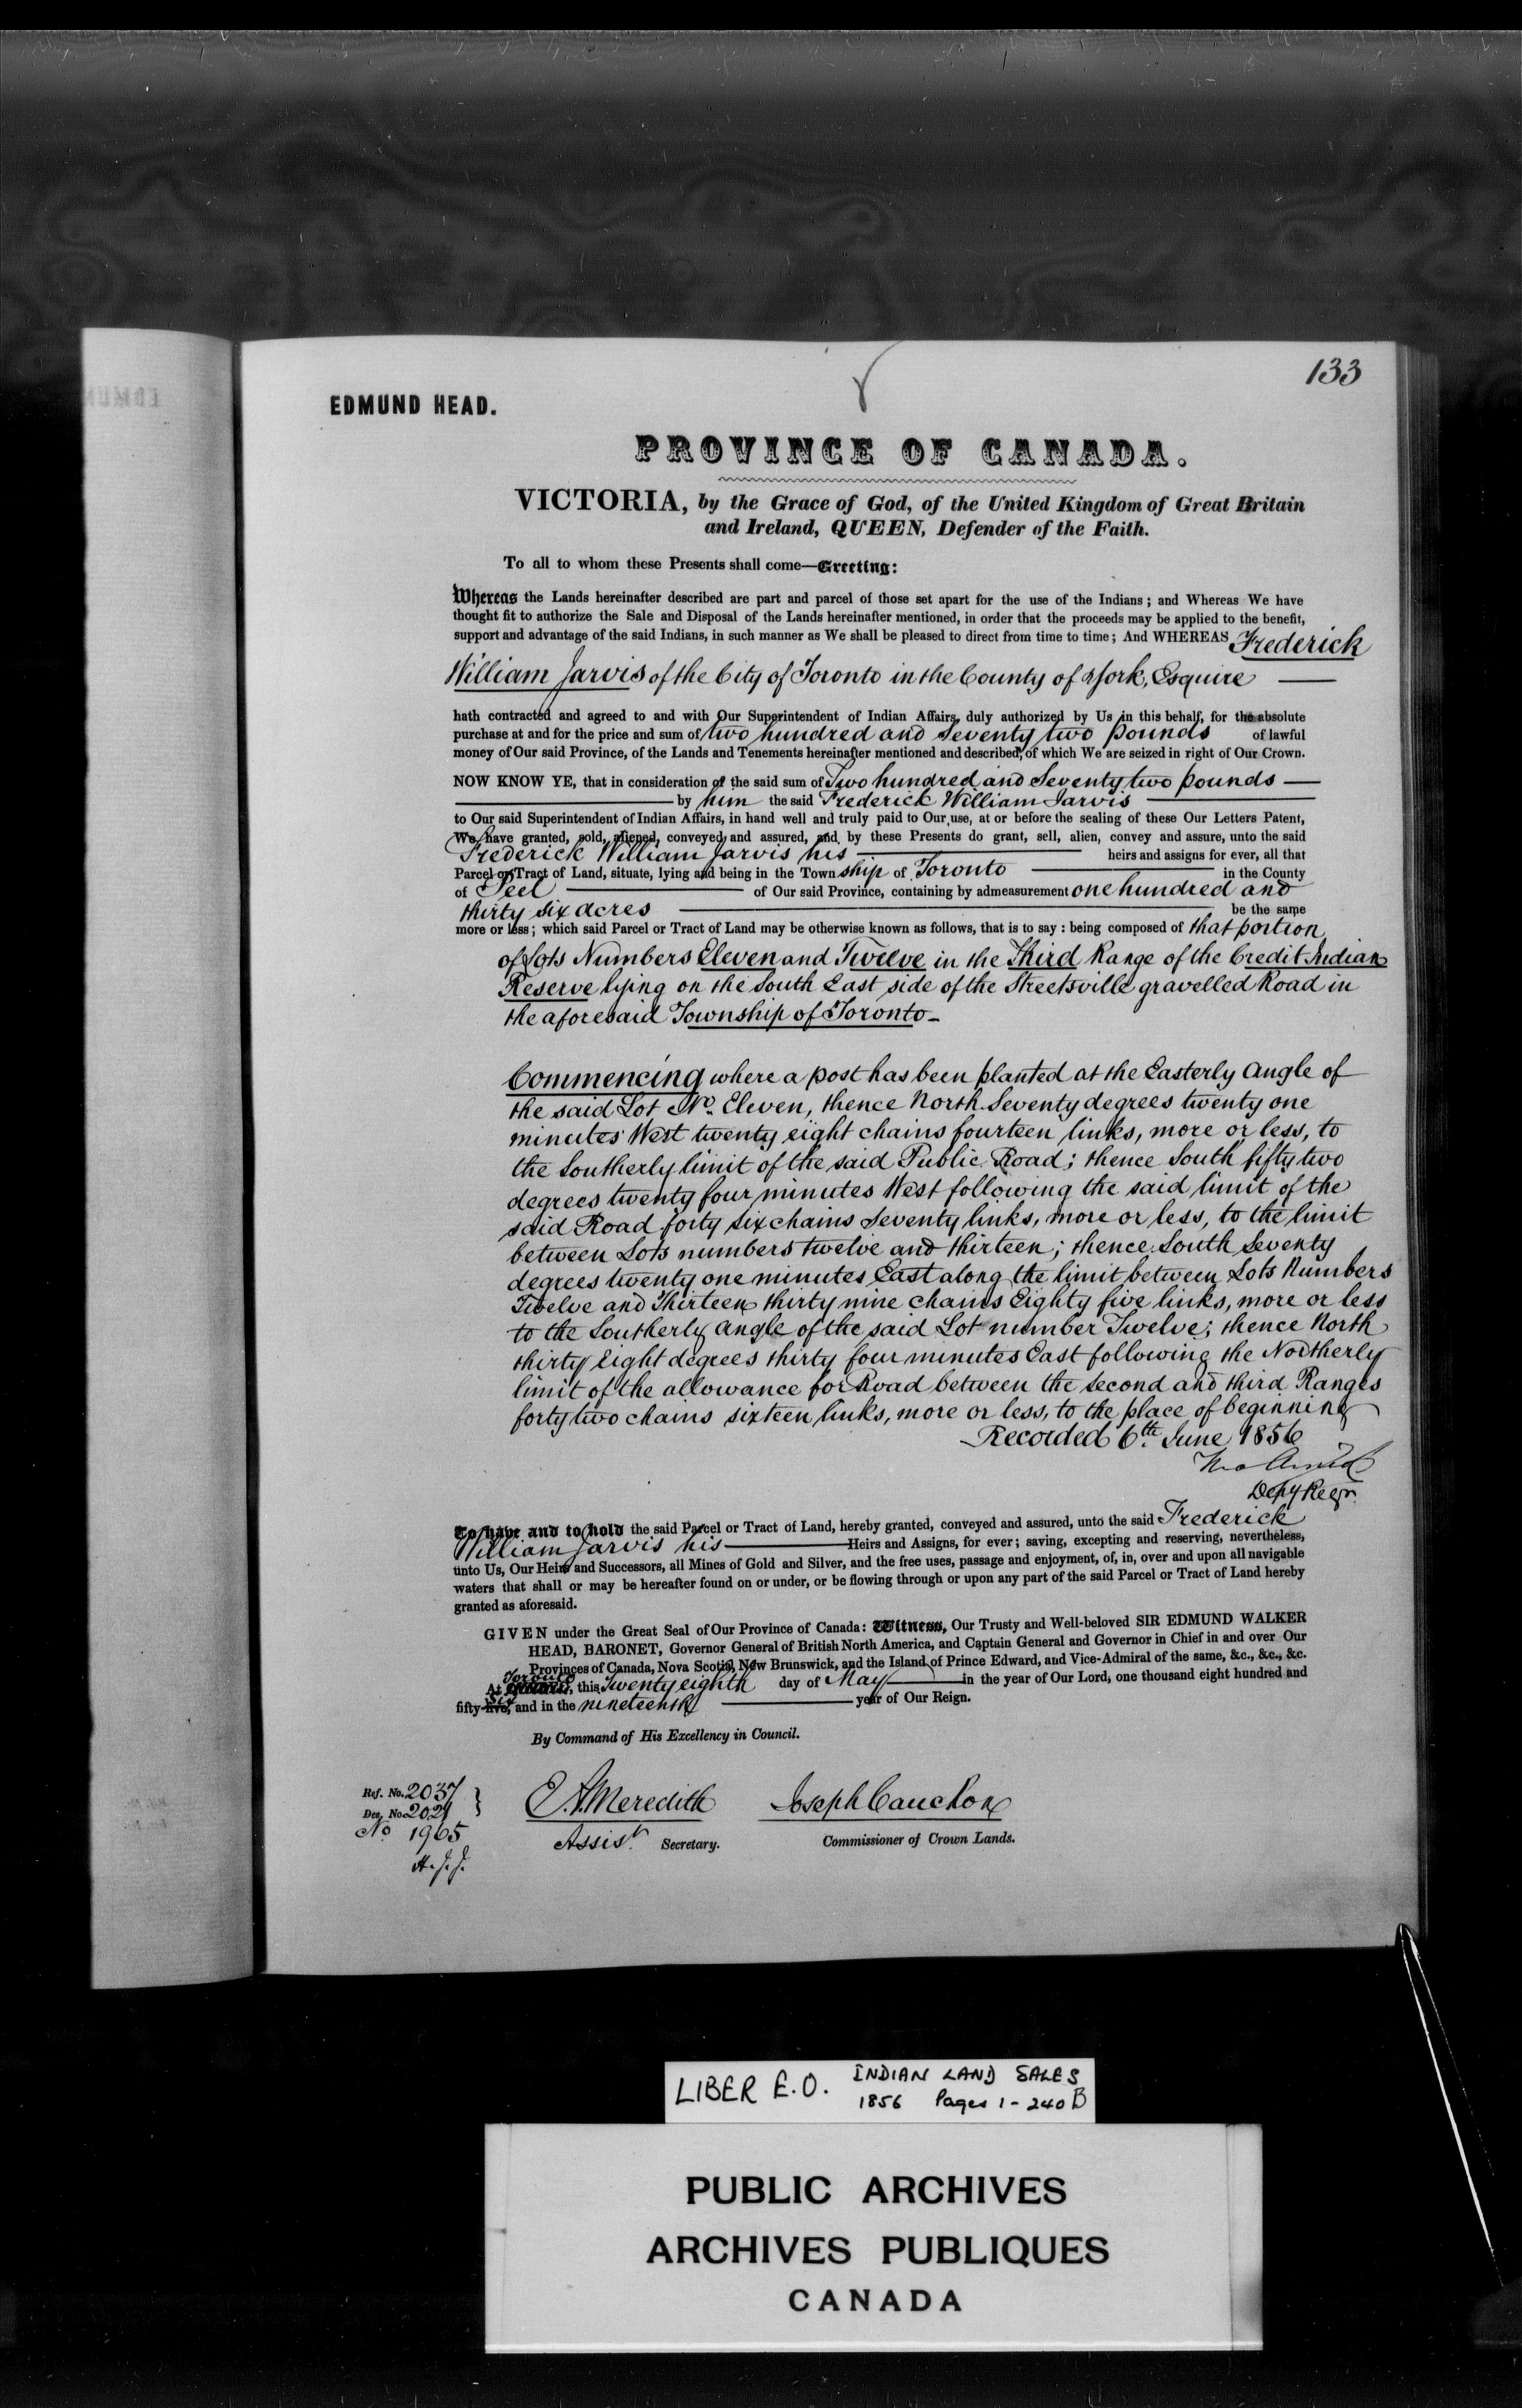 133
EDMUND HEAD.
PROVINCE OF CANADA.
VICTORIA, by the Grace of God, of the United Kingdom of Great Britain
and Ireland, QUEEN, Defender of the Faith.
To all to whom these Presents shall come—Greeting:
Whereas the Lands hereinafter described are part and parcel of those set apart for the use of the Indians; and Whereas We have
thought fit to authorize the Sale and Disposal of the Lands hereinafter mentioned, in order that the proceeds may be applied to the benefit,
support and advantage of the said Indians, in such manner as We shall be pleased to direct from time to time; And WHEREAS Frederick
William Jarvis of the City of Toronto in the County of York, Esquire
hath contracted and agreed to and with Our Superintendent of Indian Affairs, duly authorized by Us in this behalf, for the absolute
purchase at and for the price and sum of two hundred and Seventy two pounds of lawful
money of Our said Province, of the Lands and Tenements hereinafter mentioned and described, of which We are seized in right of Our Crown.
NOW KNOW YE, that in consideration of the said sum of Two hundred and Seventy two pounds
by him the said Frederick William Jarvis
to Our said Superintendent of Indian Affairs, in hand well and truly paid to Our use, at or before the sealing of these Our Letters Patent,
We have granted, sold, aliened, conveyed and assured, and by these Presents do grant, sell, alien, convey and assure, unto the said
Frederick William Jarvis his heirs and assigns for ever, all that
Parcel or Tract of Land, situate, lying and being in the Township of Toronto in the County
of Peel of Our said Province, containing by admeasurement one hundred and
thirty six acres be the same
more or less; which said Parcel or Tract of Land may be otherwise known as follows, that is to say: being composed of that portion
of Lots Numbers Eleven and Twelve in the Third Range of the Credit Indian
Reserve lying on the South East side of the Streetsville gravelled Road in
the aforesaid Township of Toronto—
Commencing where a post has been planted at the Easterly Angle of
the said Lot No. Eleven, thence North Seventy degrees twenty one
minutes West twenty eight chains fourteen links, more or less, to
the Southerly limit of the said Public Road; thence South fifty two
degrees twenty four minutes West following the said limit of the
said Road forty six chains Seventy links, more or less, to the limit
between Lots numbers twelve and thirteen; thence South Seventy
degrees twenty one minutes East along the limit between Lots Numbers
Twelve and Thirteen thirty nine chains Eighty five links, more or less
to the Southerly angle of the said Lot number Twelve; thence North
thirty Eight degrees thirty four minutes East following the Northerly
limit of the allowance for Road between the second and third Ranges
forty two chains sixteen links, more or less, to the place of beginning
Recorded 6th June 1856
Depy Regr.
To have and to hold the said Parcel or Tract of Land, hereby granted, conveyed and assured, unto the said Frederick
William Jarvis his Heirs and Assigns, for ever; saving, excepting and reserving, nevertheless,
unto Us, Our Heirs and Successors, all Mines of Gold and Silver, and the free uses, passage and enjoyment, of, in, over and upon all navigable
waters that shall or may be hereafter found on or under, or be flowing through or upon any part of the said Parcel or Tract of Land hereby
granted as aforesaid.
GIVEN under the Great Seal of Our Province of Canada: Witness, Our Trusty and Well-beloved SIR EDMUND WALKER
HEAD, BARONET, Governor General of British North America, and Captain General and Governor in Chief in and over Our
Provinces of Canada, Nova Scotia, New Brunswick, and the Island of Prince Edward, and Vice-Admiral of the same, &c., &c., &c.
At Toronto, this Twenty eighth day of May in the year of Our Lord, one thousand eight hundred and
fifty-five, six and in the nineteenth year of Our Reign.
By Command of His Excellency in Council.
Ref. No. 2037
Des. No. 2021
No. 1965
E.A. Meredith
Joseph Cauchon
Assist. Secretary.
Commissioner of Crown Lands.
LIBER E.O. INDIAN LAND SALES
1856 Pages 1-240B
PUBLIC ARCHIVES
ARCHIVES PUBLIQUES
CANADA